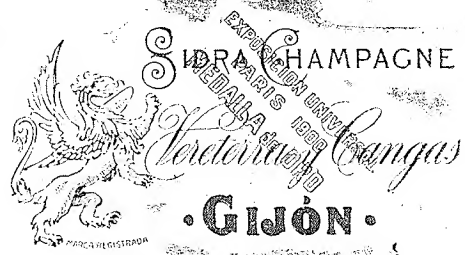 SIDRA CHAMPAGNE
EXPOSICIÓN UNIVERSAL
PARIS 1900
MEDALLA de ORO
Vereterra y Cangas
·GIJÓN·
MARCA REGISTRADA